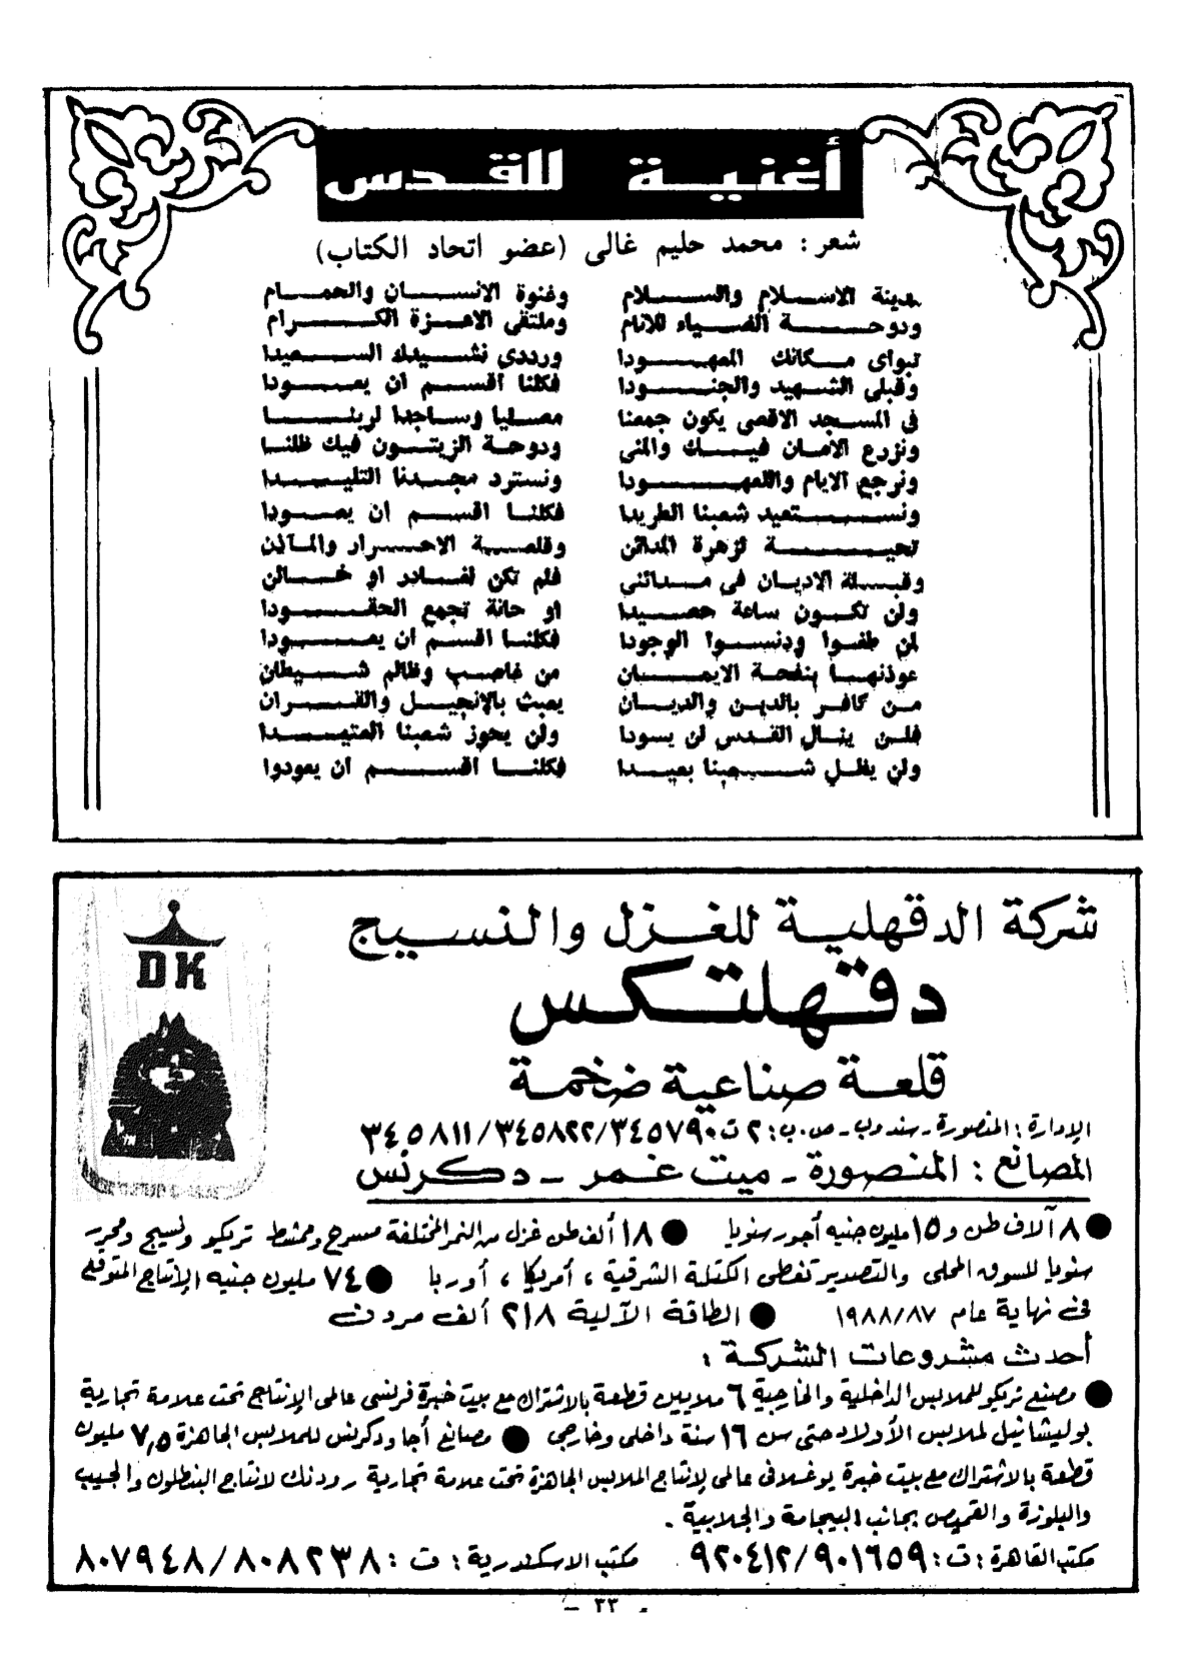 أغنية للقدس
شعر : محمد حليم غالى (عضو اتحاد الكتاب)
مدينة الاسلام والسلام وغنوة الانسان والحمام
ودوحة الضياء للانام وملتقى الاعزة الكرام
تبواى مكانك المعهودا ورددى نشيدك السعيدا
وقبلى الشهيد والجنودا فكلنا أقسم ان يعودا
فى المسجد الاقصى يكون جمعنا مصليا وساجدا لربنا
ونزرع الامان فيك والمنى ودوحة الزيتون فيك ظلنا
ونرجع الايام والعهودا ونسترد مجدنا التليدا
ونستعيد شعبنا الطريدا فكلنا اقسم ان يعودا
تحية لزهرة المدائن وقلعة الاحرار والمآذن
وقبلة الاديان فى مدائنى فلم تكن لغادر او خائن
ولن تكون ساعة حصيدا او حانة تجمع الحقودا
لمن طغوا ودنسوا الوجودا فكلنا اقسم ان يعودا
عوذتها بنفحة الايمان من غاصب وظالم شيطان
من كافر بالدين والديان يعبث بالإنجيل والقران
فلن ينال القدس لن يسودا ولن يحوز شعبنا العتيدا
ولن يظل شعبنا بعيدا فكلنا اقسم ان يعودوا
DK
شركة الدقهلية للغزل والنسيج
دقهلتكس
قلعة صناعية ضخمة
الإدارة : المنصورة - سندوب - ص.ب : ٢ ت ٣٤٥٧٩٠/٣٤٥٨٢٢/٣٤٥٨١١
المصانع : المنصورة - ميت غمر - دكرنس
● ٨ آلاف طن و ١٥ مليون جنيه أجور سنويا ● ١٨ ألف طن غزل من النمر المختلفة مسرح وممشط تريكو ونسيج ومحرر
سنويا للسوق المحلى والتصدير تغطى الكتلة الشرقية ، أمريكا ، أوربا ● ٧٤ مليون جنيه الإنتاج المتوقع
فى نهاية عام ١٩٨٨/٨٧ ● الطاقة الآلية ٢١٨ ألف مردن
أحدث مشروعات الشركة :
● مصنع تريكو للملابس الداخلية والخارجية ٦ ملايين قطعة بالاشتراك مع بيت خبرة فرنسى عالمى الإنتاج تحت علامة تجارية
بوليشانيل لملابس الأولاد حتى سن ١٦ سنة داخلى وخارجى ● مصانع أجا ودكرنس للملابس الجاهزة ٧,٥ مليون
قطعة بالاشتراك مع بيت خبرة يوغسلافى عالمى لإنتاج الملابس الجاهزة تحت علامة تجارية رودنك لانتاج البنطلون والجيب
والبلوزة والقميص بجانب البيجامة والجلابية .
مكتب القاهرة : ت : ٩٢٠٤١٢/٩٠١٦٥٩ مكتب الاسكندرية : ت : ٨٠٧٩٤٨/٨٠٨٢٣٨
- ٣٣ -